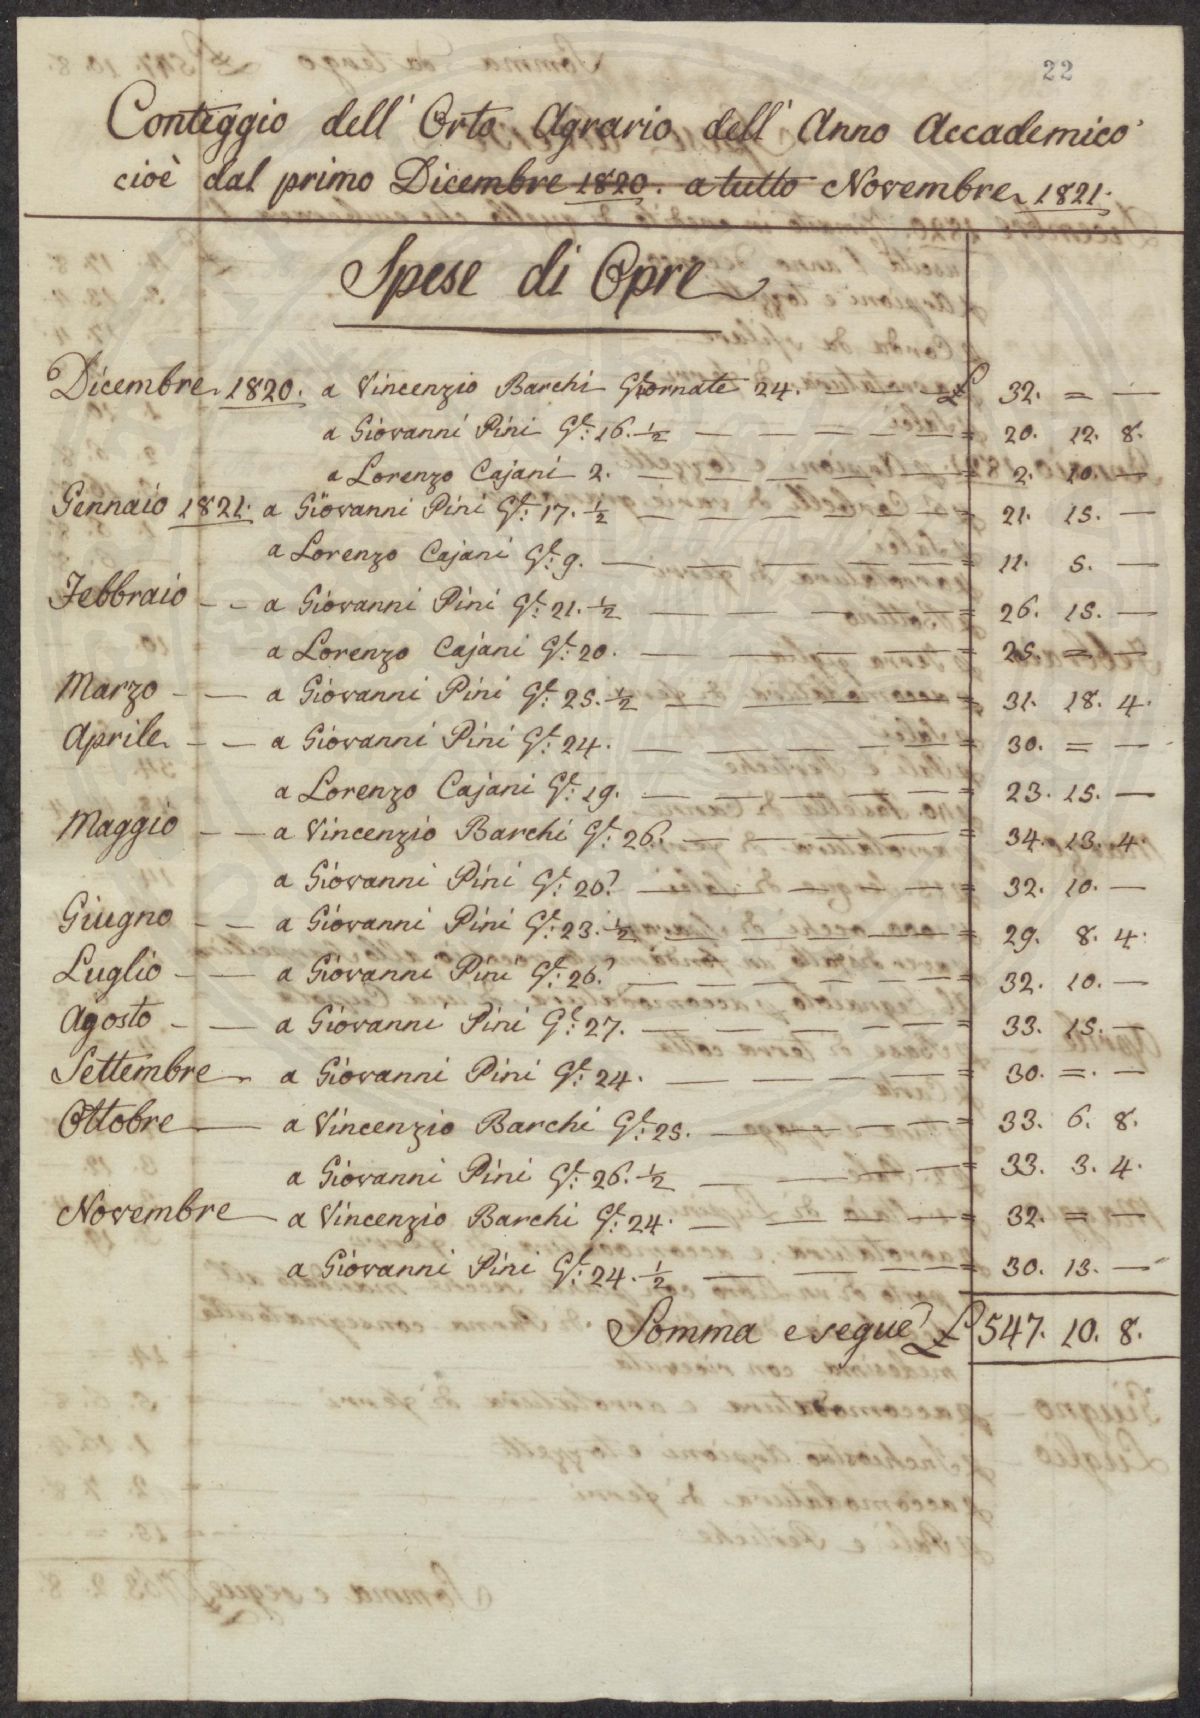 22
Conteggio dell' Orto Agrario dell' Anno Accademico
cioè dal primo Dicembre 1820. a tutto Novembre 1821.
Spese di Opre
Dicembre 1820. a Vincenzio Barchi Giornate 24. — — — £ 32. = —
a Giovanni Pini Gte: 16. ½ — — — — — = 20. 12. 8.
a Lorenzo Cajani 2. — — — — — = 2. 10. —
Gennaio 1821. a Giovanni Pini Gte: 17. ½ — — — — — = 21. 15. —
a Lorenzo Cajani Gte: 9. — — — — — = 11. 5. —
Febbraio - - a Giovanni Pini Gte: 21. ½ — — — — = 26. 15. —
a Lorenzo Cajani Gte: 20. — — — — = 25. = —
Marzo - — a Giovanni Pini Gte: 25. ½ — — — — = 31. 18. 4.
Aprile - — a Giovanni Pini Gte: 24. — — — — = 30. = —
a Lorenzo Cajani Gte: 19. — — — — = 23. 15. —
Maggio - — a Vincenzio Barchi Gte: 26. — — — — = 34. 13. 4.
a Giovanni Pini Gte: 26. — — — — = 32. 10. —
Giugno - - a Giovanni Pini Gte: 23. ½ — — — — = 29. 8. 4.
Luglio - — a Giovanni Pini Gte: 26. — — — — = 32. 10. —
Agosto - — a Giovanni Pini Gte: 27. — — — — = 33. 15. —
Settembre a Giovanni Pini Gte: 24. — — — — = 30. =. —
Ottobre — a Vincenzio Barchi Gte: 25. — — — — = 33. 6. 8.
a Giovanni Pini Gte: 26. ½ — — — — = 33. 3. 4.
Novembre — a Vincenzio Barchi Gte: 24. — — — — = 32. = —
a Giovanni Pini Gte: 24. ½ — — — — = 30. 13. —
Somma e segue £ 547. 10. 8.